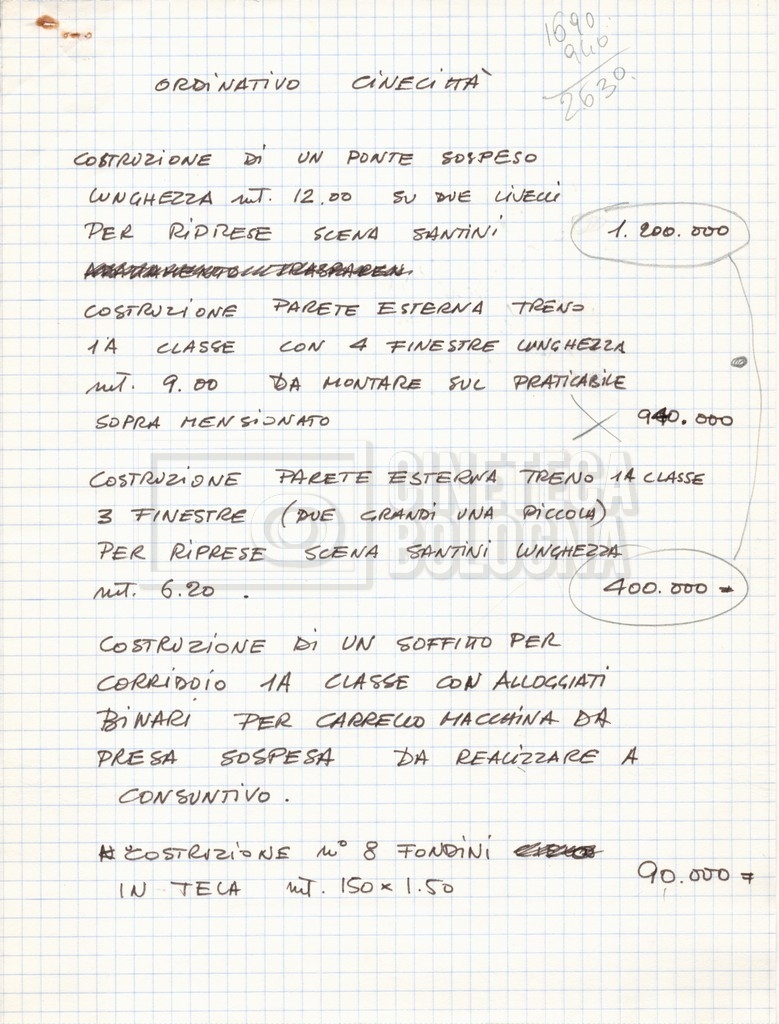 1690.
940
2630.
ORDINATIVO CINECITTÀ
COSTRUZIONE DI UN PONTE SOSPESO
LUNGHEZZA mt. 12.00 SU DUE LIVELLI
PER RIPRESE SCENA SANTINI 1.200.000
COSTRUZIONE PARETE ESTERNA TRENO
1A CLASSE CON 4 FINESTRE LUNGHEZZA
mt. 9.00 DA MONTARE SUL PRATICABILE
SOPRA MENSIONATO 940.000
COSTRUZIONE PARETE ESTERNA TRENO 1A CLASSE
3 FINESTRE (DUE GRANDI UNA PICCOLA)
PER RIPRESE SCENA SANTINI LUNGHEZZA
mt. 6.20. 400.000=
CINETECA
BOLOGNA
COSTRUZIONE DI UN SOFFITTO PER
CORRIDOIO 1A CLASSE CON ALLOGGIATI
BINARI PER CARRELLO MACCHINA DA
PRESA SOSPESA DA REALIZZARE A
CONSUNTIVO.
COSTRUZIONE n° 8 FONDINI
IN TELA mt. 150 x 1.50 90.000=